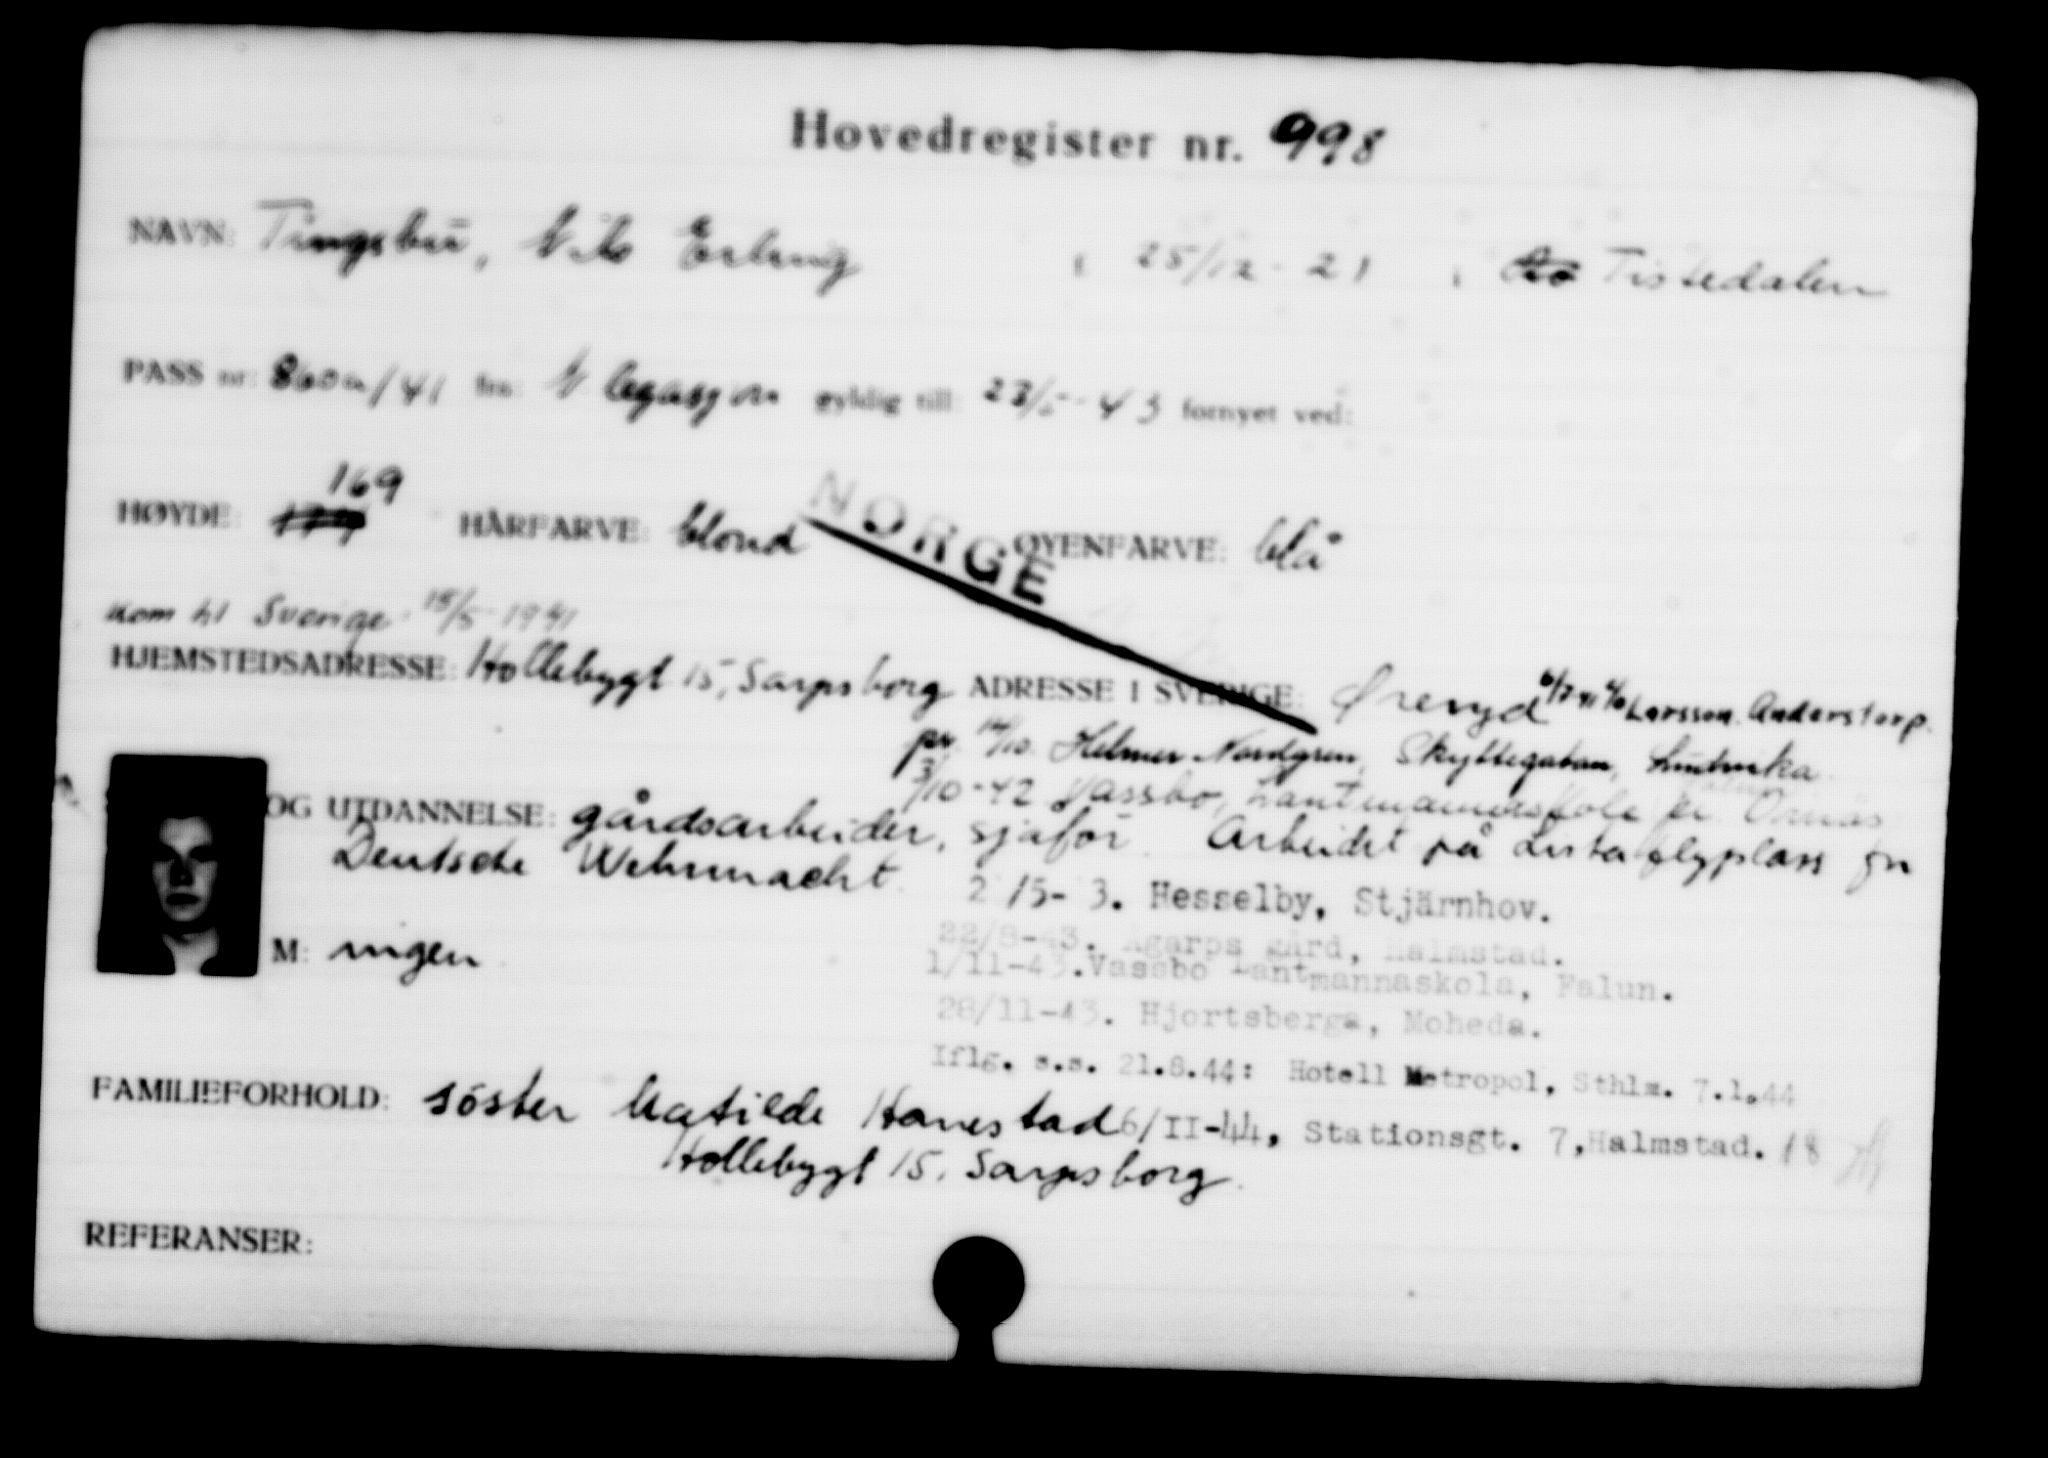 Hovedregister nr. 998
NAVN: Tingsbu, Nils Erling , 25/12-21 , Tistedalen
PASS nr: 860a/41 fra: N legasjon gyldig till: 23/5-43 fornyet ved:
169
HØYDE: HÅRFARVE: blond ØYENFARVE: blå
NORGE
kom til Sverige 18/5 1941
HJEMSTEDSADRESSE: Hollebygt 15, Sarpsborg ADRESSE I SVERIGE: Ørenyd 6/7-41 Larsson. Anderstorp.
pr. 14/10. Helmer Nordgren, Skyttegatan, Ludvika
3/10-42 Vassbo, Lantmannaskola pr. Ornäs
OG UTDANNELSE: gårdsarbeider, sjåför. Arbeidet på Lista flyplass for
Deutsche Wehrmacht.
2 /5- 3. Hesselby, Stjärnhov.
22/8-43. Ågarps gård, Halmstad.
M: ingen
1/11-43. Vassbo Lantmannaskola, Falun.
28/11-43. Hjortsberga, Moheda.
Iflg. s.s. 21.8.44: Hotell Metropol, Sthlm. 7.1.44
FAMILIEFORHOLD: söster Matilde Hanestad 6/11-44, Stationsgt. 7, Halmstad. 18
Hollebygt 15. Sarpsborg.
REFERANSER: